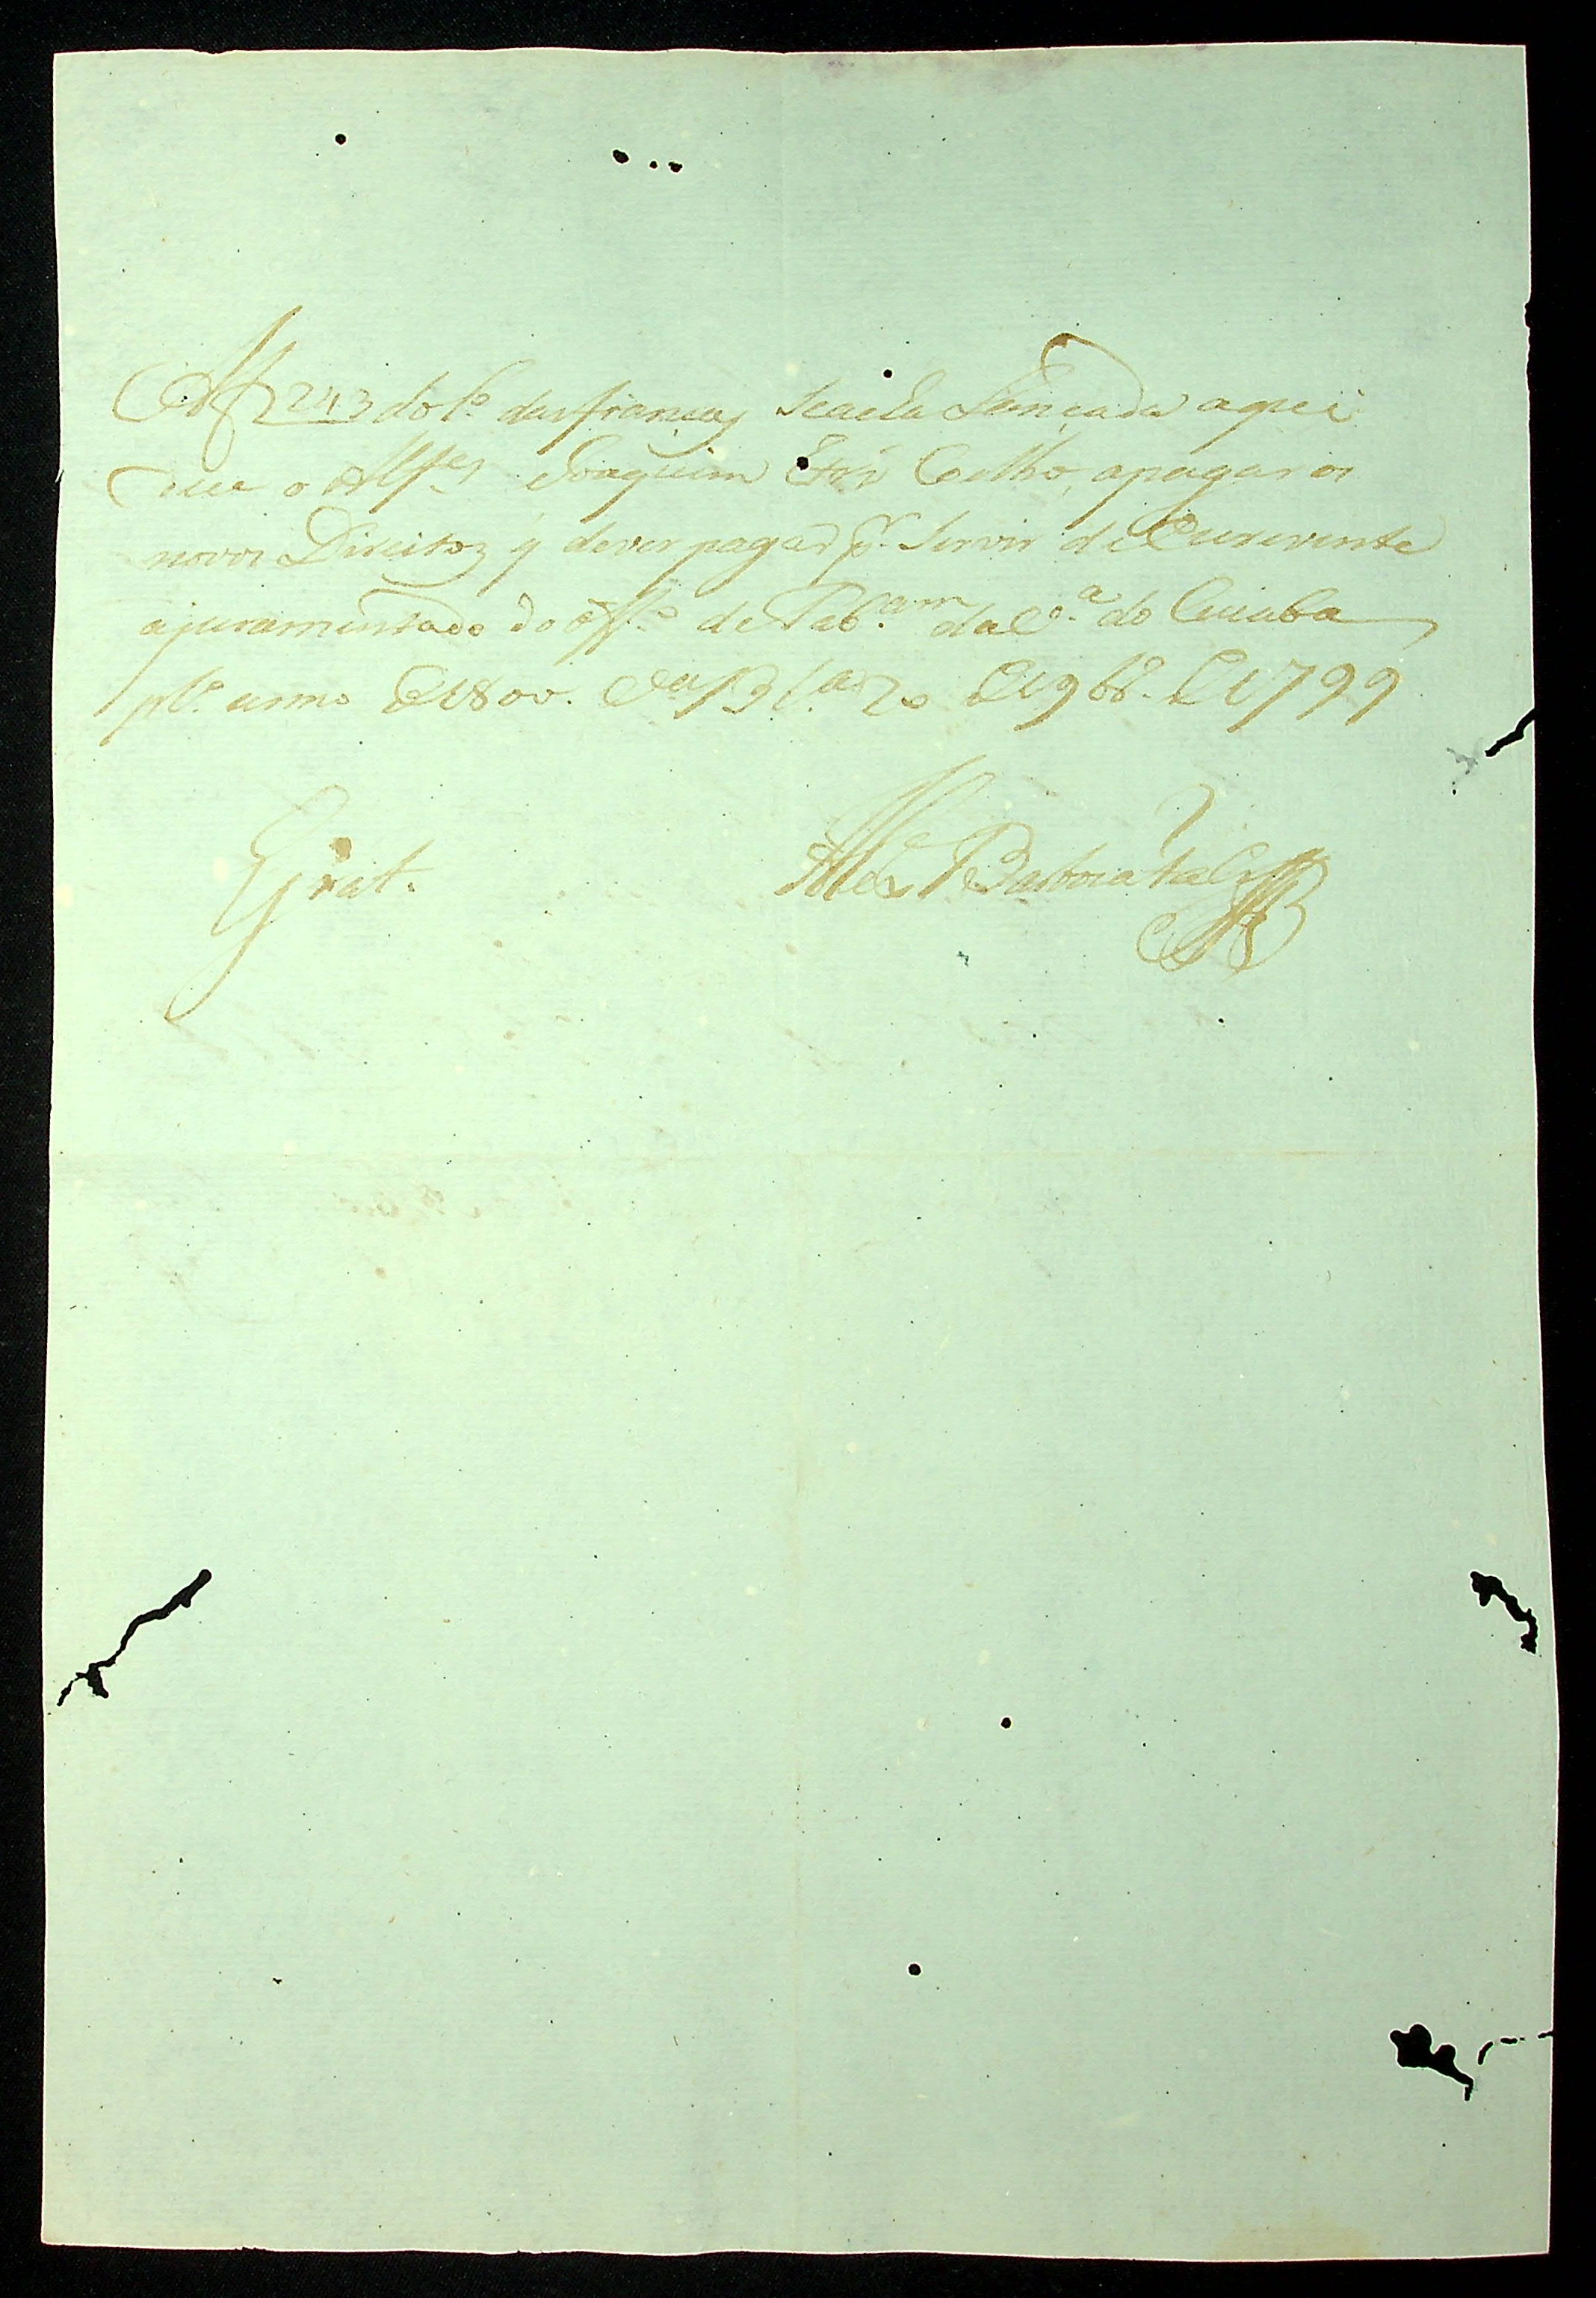 Af 243 do Lº das fianças fica ella Lançada a que
deu o Alfes Joaquim Coelho, apagar os
novos Direitos q dever pagar pr Servir de Escrevente
ajuramentado do offº de Tabam da Vª do Cuiaba
plº anno de 1800. Vª Bª 20 de 9bro de 1799
Grat.
Barboza